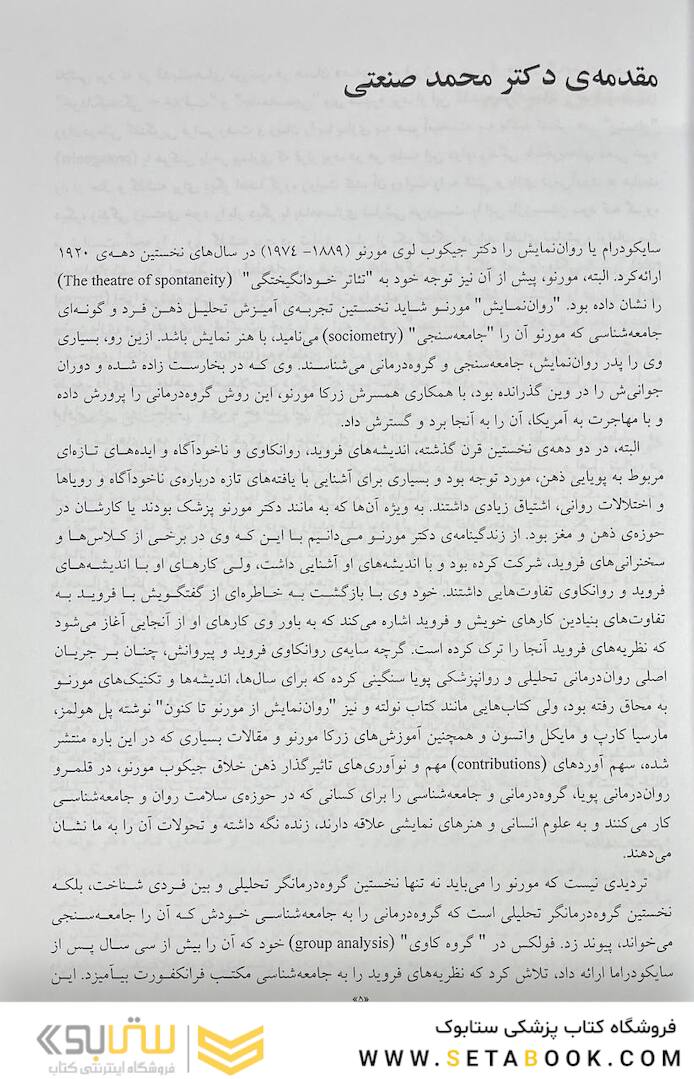 مقدمه‌ی دکتر محمد صنعتی
سایکودرام یا روان‌نمایش را دکتر جیکوب لوی مورنو (۱۸۸۹- ۱۹۷۴) در سال‌های نخستین دهه‌ی ۱۹۲۰
ارائه‌کرد. البته، مورنو، پیش از آن نیز توجه خود به "تئاتر خودانگیختگی" (The theatre of spontaneity)
را نشان داده بود. "روان‌نمایش" مورنو شاید نخستین تجربه‌ی آمیزش تحلیل ذهن فرد و گونه‌ای
جامعه‌شناسی که مورنو آن را "جامعه‌سنجی" (sociometry) می‌نامید، با هنر نمایش باشد. ازین رو، بسیاری
وی را پدر روان‌نمایش، جامعه‌سنجی و گروه‌درمانی می‌شناسند. وی که در بخارست زاده شده و دوران
جوانی‌ش را در وین گذرانده بود، با همکاری همسرش زرکا مورنو، این روش گروه‌درمانی را پرورش داده
و با مهاجرت به آمریکا، آن را به آنجا برد و گسترش داد.
البته، در دو دهه‌ی نخستین قرن گذشته، اندیشه‌های فروید، روانکاوی و ناخودآگاه و ایده‌های تازه‌ای
مربوط به پویایی ذهن، مورد توجه بود و بسیاری برای آشنایی با یافته‌های تازه درباره‌ی ناخودآگاه و رویاها
و اختلالات روانی، اشتیاق زیادی داشتند. به ویژه آن‌ها که به مانند دکتر مورنو پزشک بودند یا کارشان در
حوزه‌ی ذهن و مغز بود. از زندگینامه‌ی دکتر مورنو می‌دانیم با این که وی در برخی از کلاس‌ها و
سخنرانی‌های فروید، شرکت کرده بود و با اندیشه‌های او آشنایی داشت، ولی کارهای او با اندیشه‌های
فروید و روانکاوی تفاوت‌هایی داشتند. خود وی با بازگشت به خاطره‌ای از گفتگویش با فروید به
تفاوت‌های بنیادین کارهای خویش و فروید اشاره می‌کند که به باور وی کارهای او از آنجایی آغاز می‌شود
که نظریه‌های فروید آنجا را ترک کرده است. گرچه سایه‌ی روانکاوی فروید و پیروانش، چنان بر جریان
اصلی روان‌درمانی تحلیلی و روانپزشکی پویا سنگینی کرده که برای سال‌ها، اندیشه‌ها و تکنیک‌های مورنو
به محاق رفته بود، ولی کتاب‌هایی مانند کتاب نولته و نیز "روان‌نمایش از مورنو تا کنون" نوشته پل هولمز،
مارسیا کارپ و مایکل واتسون و همچنین آموزش‌های زرکا مورنو و مقالات بسیاری که در این باره منتشر
شده، سهم آوردهای (contributions) مهم و نوآوری‌های تاثیرگذار ذهن خلاق جیکوب مورنو، در قلمرو
روان‌درمانی پویا، گروه‌درمانی و جامعه‌شناسی را برای کسانی که در حوزه‌ی سلامت روان و جامعه‌شناسی
کار می‌کنند و به علوم انسانی و هنرهای نمایشی علاقه دارند، زنده نگه داشته و تحولات آن را به ما نشان
می‌دهند.
تردیدی نیست که مورنو را می‌باید نه تنها نخستین گروه‌درمانگر تحلیلی و بین فردی شناخت، بلکه
نخستین گروه‌درمانگر تحلیلی است که گروه‌درمانی را به جامعه‌شناسی خودش که آن را جامعه‌سنجی
می‌خواند، پیوند زد. فولکس در " گروه کاوی" (group analysis) خود که آن را بیش از سی سال پس از
سایکودراما ارائه داد، تلاش کرد که نظریه‌های فروید را به جامعه‌شناسی مکتب فرانکفورت بیامیزد. این
«۵»
فروشگاه کتاب پزشکی ستابوک
WWW.SETABOOK.COM
ستابوک
فروشگاه اینترنتی کتاب